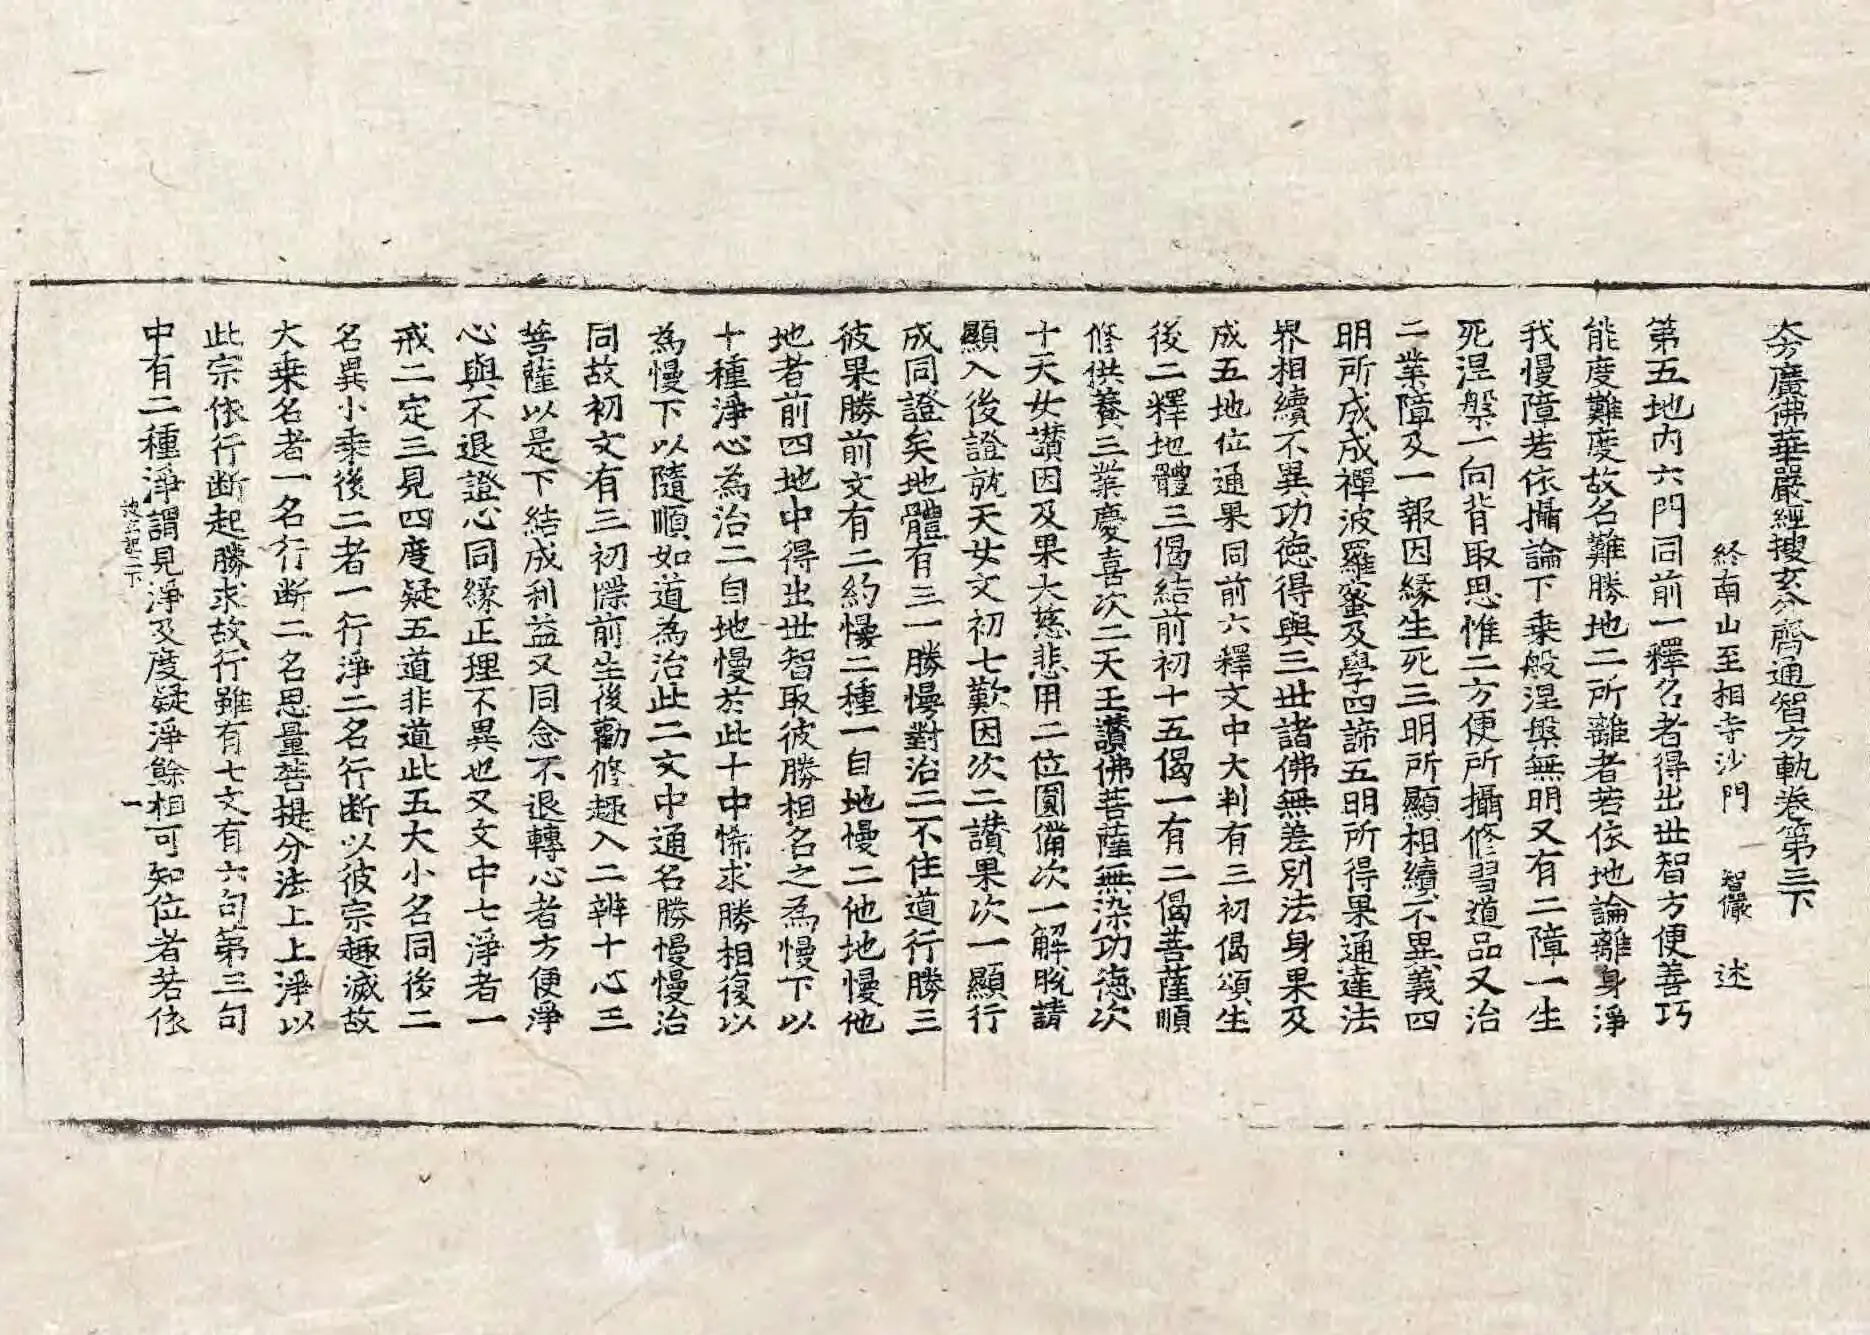 大方廣佛華嚴經搜玄分齊通智方軌卷第三下
終南山至相寺沙門　智儼　述
第五地内六門同前一釋名者得出世智方便善巧
能度難度故名難勝地二所離者若依地論離身淨
我慢障若依攝論下乗般涅槃無明又有二障一生
死涅槃一向背取思惟二方便所攝修習道品又治
二業障及一報因緣生死三明所顯相續不異義四
明所成成禪波羅蜜及學四諦五明所得果通達法
界相續不異功徳得與三世諸佛無差別法身果及
成五地位通果同前六釋文中大判有三初偈頌生
後二釋地體三偈結前初十五偈一有二偈菩薩順
修供養三業慶喜次二天王讃佛菩薩無染功徳次
十天女讃因及果大慈悲用二位圓備次一解脫請
顯入後證就天女文初七歎因次二讃果次一顯行
成同證矣地體有三一勝慢對治二不住道行勝三
彼果勝前文有二約慢二種一自地慢二他地慢他
地者前四地中得出世智取彼勝相名之為慢下以
十種淨心為治二自地慢於此十中悕求勝相復以
為慢下以隨順如道為治此二文中通名勝慢慢治
同故初文有三初牒前生後勸修趣入二辨十心三
菩薩以是下結成利益又同念不退轉心者方便淨
心與不退證心同緣正理不異也又文中七淨者一
戒二定三見四度疑五道非道此五大小名同後二
名異小乗後二者一行淨二名行断以彼宗趣滅故
大乗名者一名行断二名思量菩提分法上上淨以
此宗依行断起勝求故行雖有七文有六句第三句
中有二種淨謂見淨及度疑淨餘相可知位者若依
一